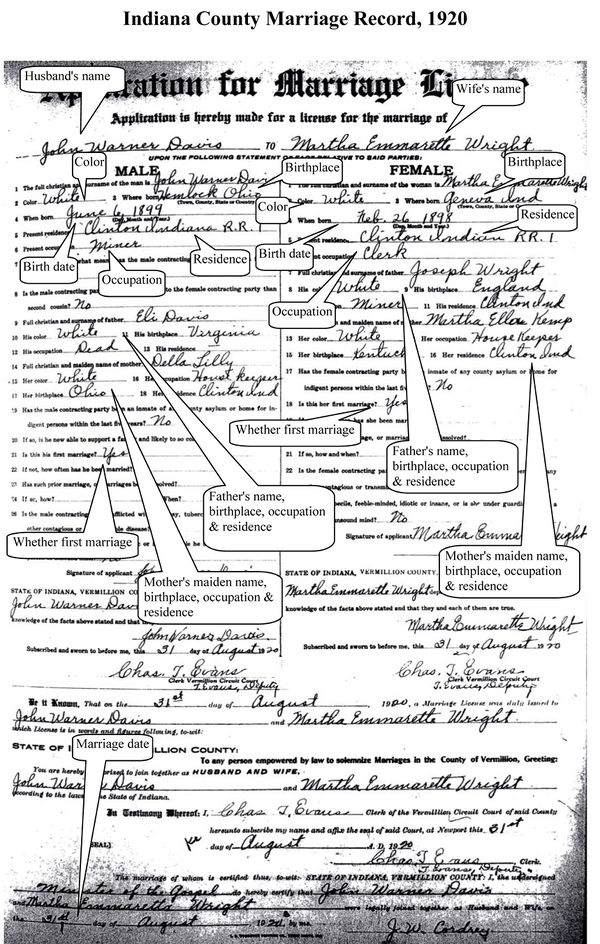 Indiana County Marriage Record, 1920
Husband's name
Application for Marriage Lic
Wife's name
Application is hereby made for a license for the marriage of
John Warner Davis TO Martha Emmarette Wright
UPON THE FOLLOWING STATEMENT RELATIVE TO SAID PARTIES:
MALE
FEMALE
Color
Birthplace
Birthplace
1 The full christian an surname of the man is John Warner Davis
surname of the woman is Martha Emmarette Wright
2 Color White 3 Where born Hemlock Ohio
Color
White 3 Where born Geneva Ind
4 When born June 6, 1899
When born Feb. 26 1898
Residence
5 Present residence Clinton Indiana R.R. 1
residence Clinton Indian RR. 1
6 Present Miner
occupation Clerk
Birth date
Residence
Birth date
Occupation
Occupation
full christian and surname of father Joseph Wright
8 Is the male contracting to the female contracting party than
second cousin? No
8 His co White 9 His birthplace England
Miner 11 His residence Clinton Ind
9 Full christian and surname of father Eli Davis
and maiden name of Martha Ellen Kemp
10 His color White 11 His birthplace Virginia
13 Her color White Her occupation House Keeper
12 His occupation Dead 13 His residence
15 Her birthplace Kentuck 16 Her residence Clinton Ind
14 Full christian and maiden name of mother Della Lilly
15 Her color White 16 He Occupation House Keeper
17 Has the female contracting inmate of any county asylum or home for
indigent persons within the last fi No
17 Her birthplace Ohio 18 Her residence Clinton Ind
18 Is this her first marriage? Yes
19 Has the male contracting party be an inmate of a county asylum or home for in-
digent persons within the last five years? No
Whether first marriage
20 If so, is he now able to support a f and likely to so co
21 Is this his first marriage? Yes
21 If so, how and when?
22 If not, how often has be married?
22 Is the female contracting
Father's name,
birthplace, occupation
& residence
Father's name,
birthplace, occupation
& residence
23 Has such prior marriage,
24 If so, how? When?
ecile, feeble-minded, idiotic or insane, or is she under guardian
unsound mind? No
Signature of applicant Martha Emma ight
Whether first marriage
Mother's maiden name,
birthplace, occupation
& residence
Mother's maiden name,
birthplace, occupation
& residence
Signature of applicant
STATE OF INDIANA, VERMILLION CO
STATE OF INDIANA, VERMILLION COUNTY.
John Warner Davi
Martha Emmarette Wright
knowledge of the facts above stated and that
knowledge of the facts above stated and that they and each of them are true.
John Warner Davis
Martha Emmarette Wright
Subscribed and sworn to before me, this 31 day of August 1920
Subscribed and sworn to before me, this 31 day of August 1920
Chas. T. Evans
Clerk Vermillion Circuit Court
T. Evans, Deputy
Chas. T. Evans
Clerk Vermillion Circuit Court
T. Evans, Deputy
Be it Known, That on the 31st day of August 1920, a Marriage License was duly issued to
John Warner Davis and Martha Emmarette Wright
which License is in words and figures following, to-wit:
Marriage date
STATE OF I LLION COUNTY:
To any person empowered by law to solemnize Marriages in the County of Vermillion, Greeting:
You are hereby rized to join together as HUSBAND AND WIFE,
John War r Davis and Martha Emmarette Wright
according to the laws he State of Indiana.
In Testimony Whereof: I, Chas T. Evans Clerk of the Vermillion Circuit Court of said County
hereunto subscribe my name and affix the seal of said Court, at Newport this 31st
SEAL) day of August A. D. 1920
Chas. T. Evans Clerk.
T. Evans, Deputy
The marriage of whom is certified thus, to-wit: STATE OF INDIANA, VERMILLION COUNTY: I, the undersigned
Minister of the Gospel do hereby certify that John Warner Davis
and Martha Emmarette Wright were legally joined together as Husband and Wife on
the 31st day of August 1920, by me.
J. W. Cordrey